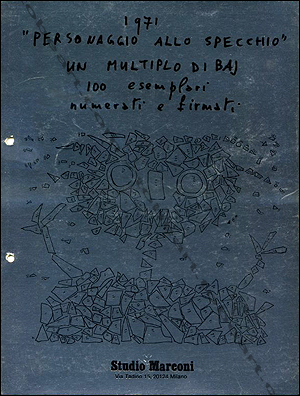 1971
"PERSONAGGIO ALLO SPECCHIO"
UN MULTIPLO DI BAJ
100 esemplari
numerati e firmati
Studio Marconi
Via Tadino 15, 20124 Milano